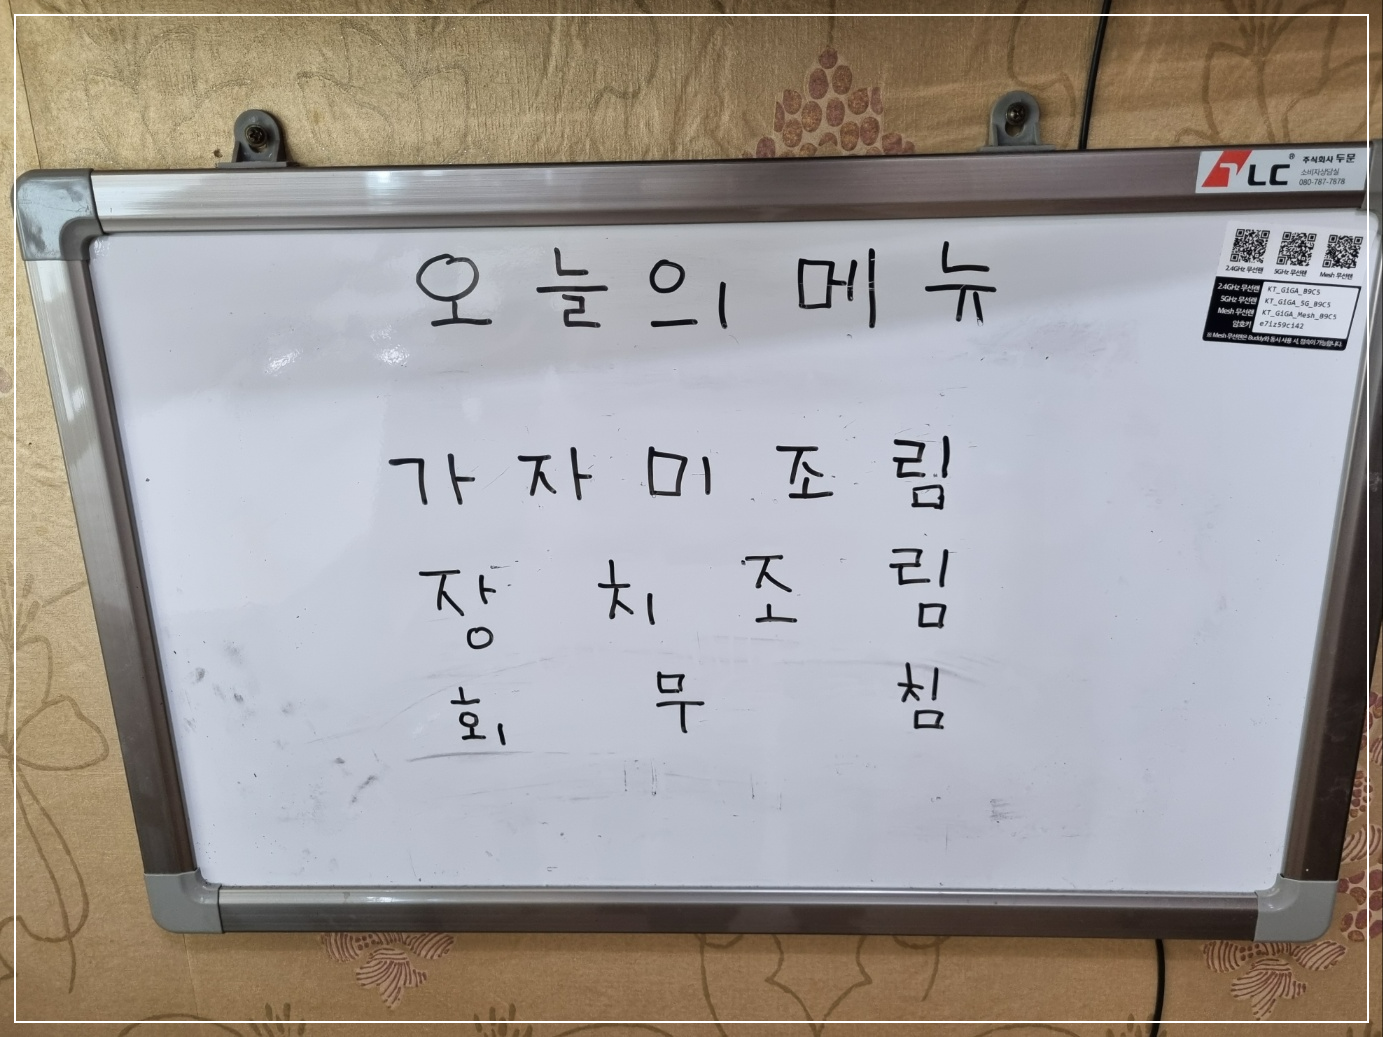 TLC® 주식회사 두문
소비자상담실
080-787-7878
2.4GHz 무선랜 5GHz 무선랜 Mesh 무선랜
2.4GHz 무선랜 KT_GiGA_B9C5
5GHz 무선랜 KT_GiGA_5G_B9C5
Mesh 무선랜 KT_GiGA_Mesh_B9C5
암호키 e7iz59ci42
※ Mesh 무선랜은 Buddy와 동시 사용 시, 접속이 가능합니다.
오늘의 메뉴
가자미조림
장치조림
회무침